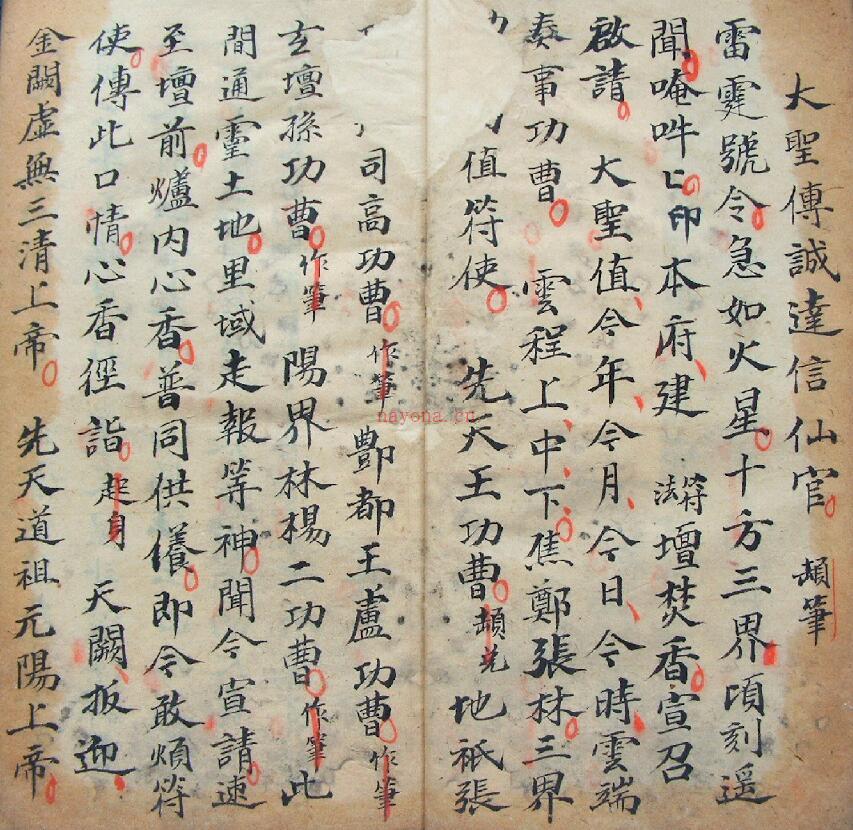 大聖傳誠達信仙官 頫筆
雷霆號令急如火星十方三界頃刻遥
聞唵吽 印本府建 符法壇焚香宣召
啟請 大聖值今年今月今日今時雲端
奏事功曹 雲程上中下焦鄭張林三界
值符使 先天王功曹 地祇張
司高功曹作筆 酆都王盧功曹作筆
玄壇孫功曹作筆 陽界林楊二功曹作筆此
間通靈土地里域走報等神聞令宣請速
至壇前爐内心香普同供養即令敢煩符
使傳此口情心香徑詣起身 天闕扳迎
金闕虚無三清上帝 先天道祖元陽上帝
nayona.cn